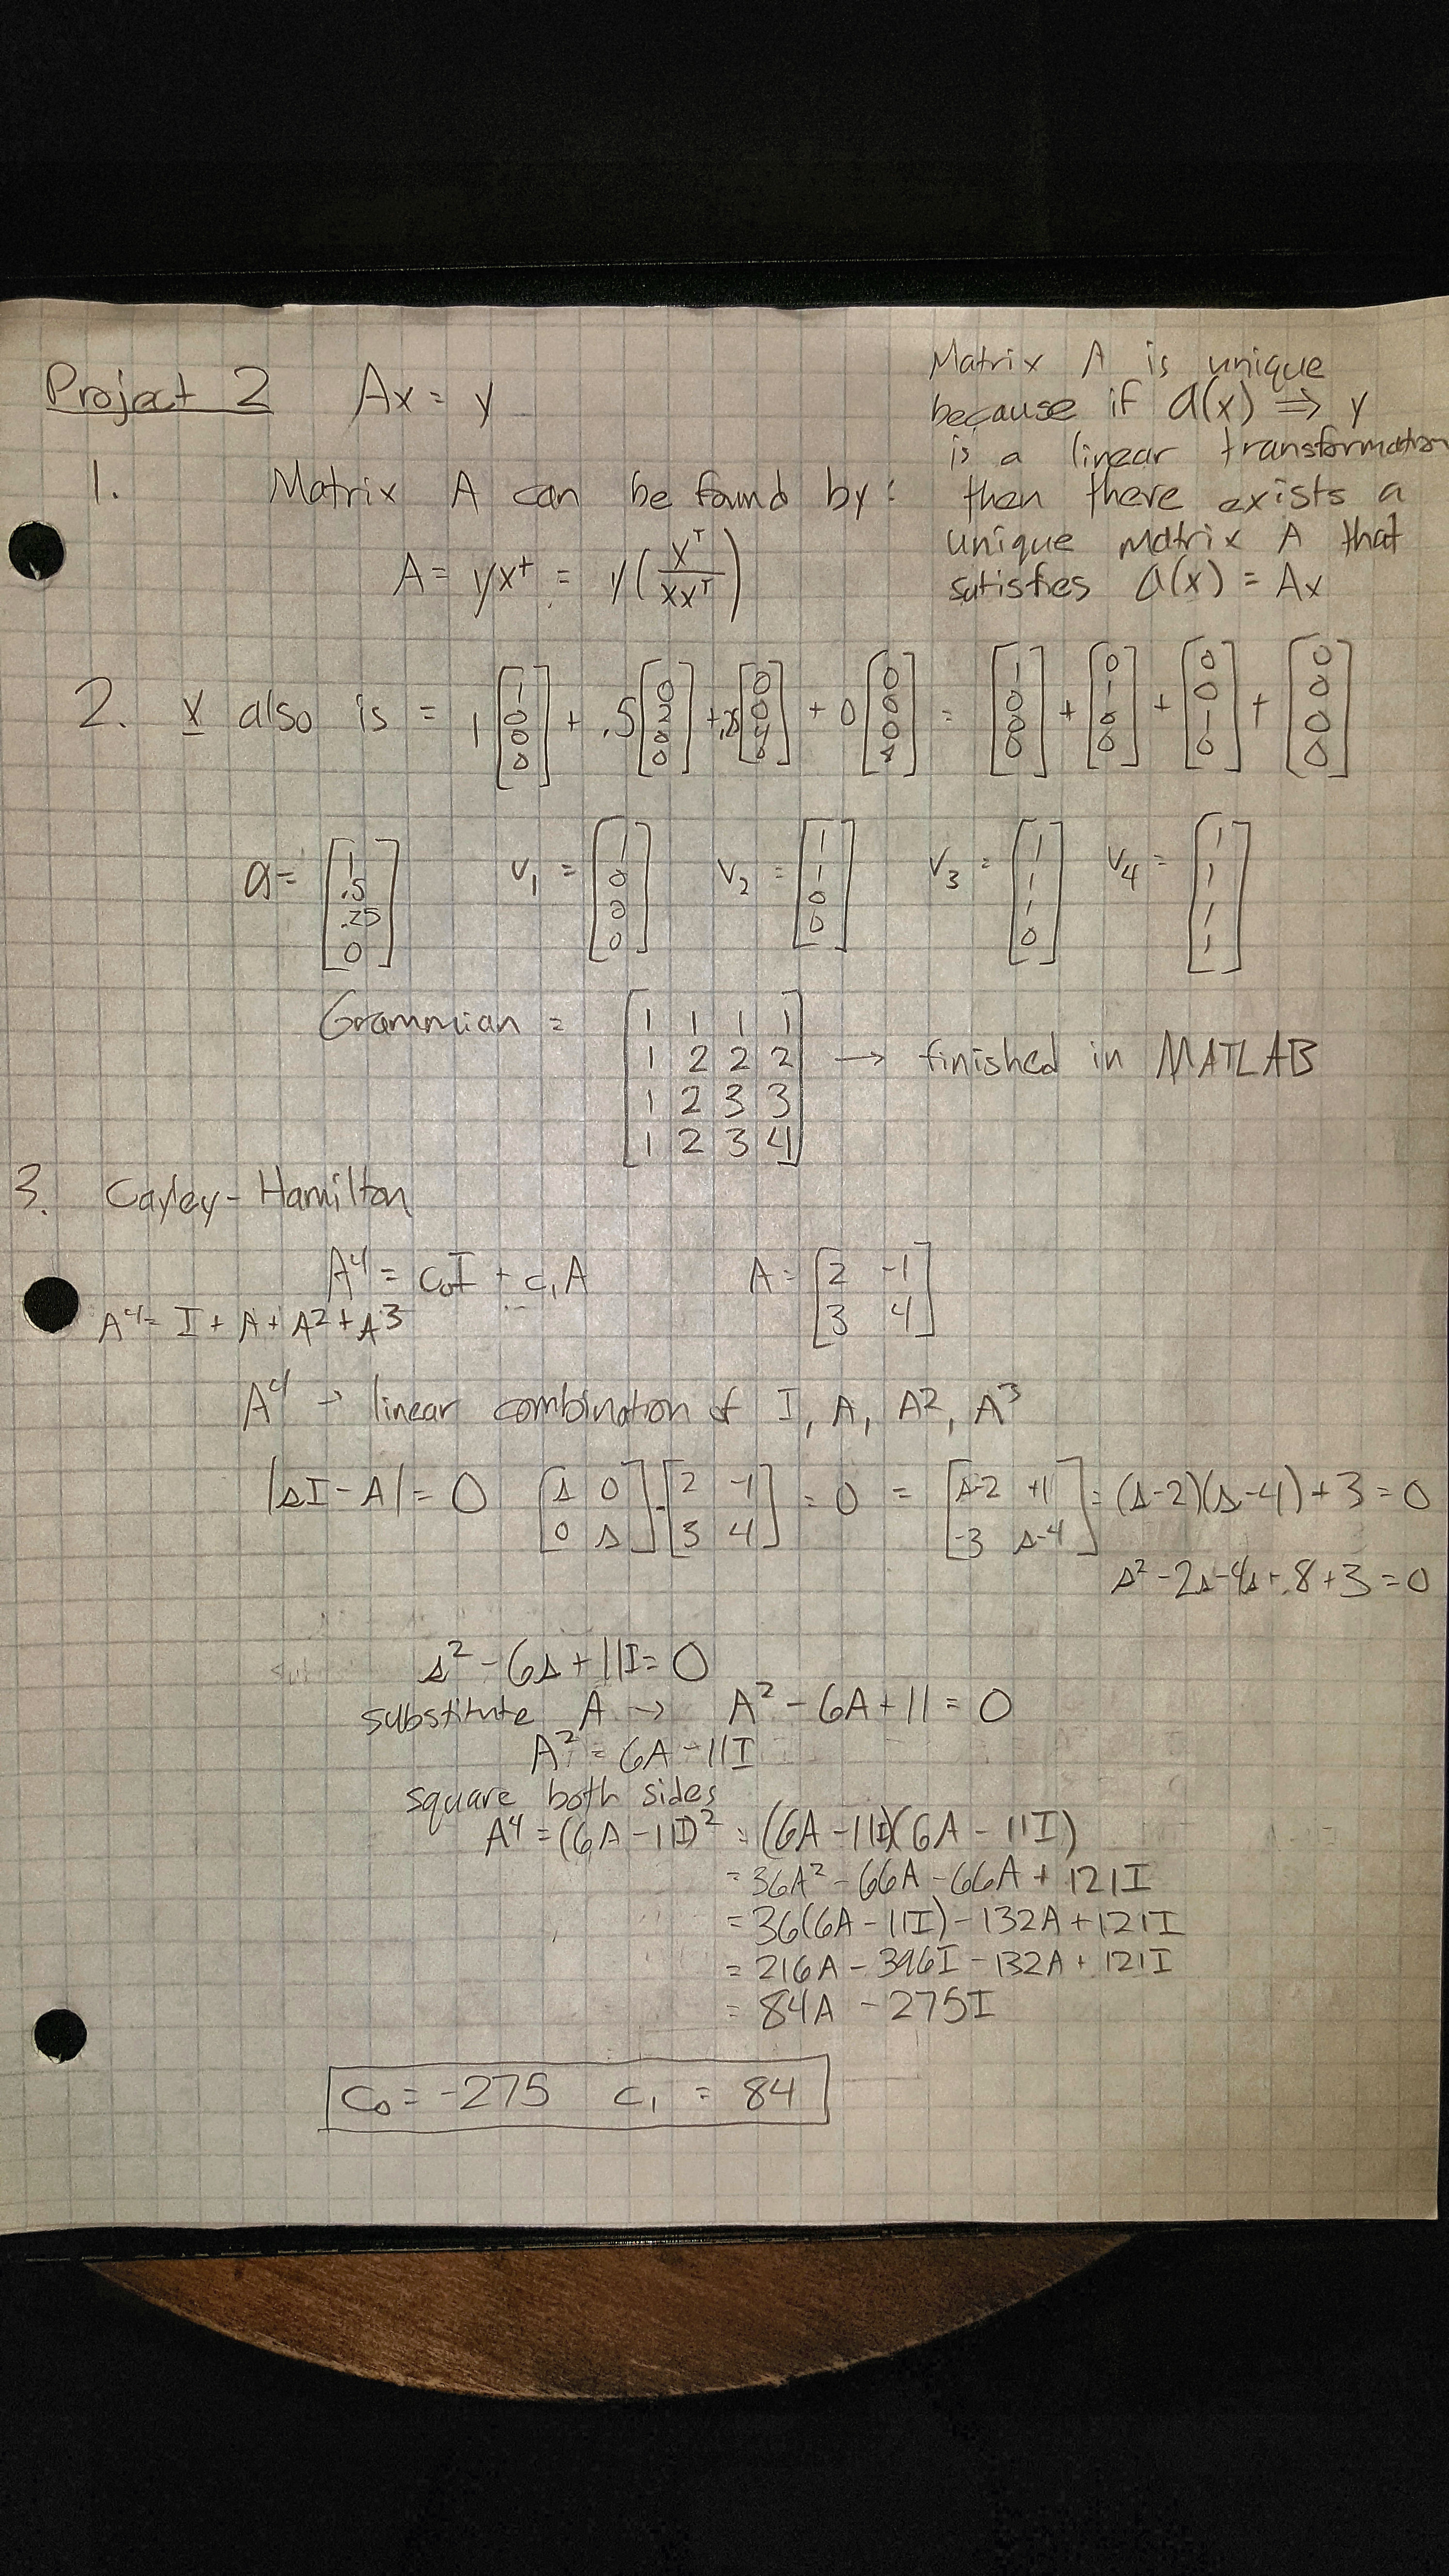 Project 2 Ax = y
Matrix A is unique
because if a(x) ⇒ y
is a linear transformation
then there exists a
unique matrix A that
satisfies a(x) = Ax
1. Matrix A can be found by:
A = yx⁺ = y(xᵀ/xxᵀ)
2. x also is = 1[1 0 0 0] + .5[0 2 0 0] + .25[0 0 4 0] + 0[0 0 0 x] = [1 0 0 0] + [0 1 0 0] + [0 0 1 0] + [0 0 0 0]
a = [1 .5 .25 0] v₁ = [1 0 0 0] v₂ = [1 1 0 0] v₃ = [1 1 1 0] v₄ = [1 1 1 1]
Grammian = [1 1 1 1
1 2 2 2
1 2 3 3
1 2 3 4] → finished in MATLAB
3. Cayley-Hamilton
A⁴ = c₀I + c₁A A = [2 -1
3 4]
A⁴ = I + A + A² + A³
A⁴ → linear combination of I, A, A², A³
|sI - A| = 0 [s 0
0 s] - [2 -1
3 4] = 0 = [s-2 +1
-3 s-4] = (s-2)(s-4) + 3 = 0
s² - 2s - 4s + 8 + 3 = 0
s² - 6s + 11I = 0
substitute A → A² - 6A + 11 = 0
A² = 6A - 11I
square both sides
A⁴ = (6A - 11I)² = (6A - 11I)(6A - 11I)
= 36A² - 66A - 66A + 121I
= 36(6A - 11I) - 132A + 121I
= 216A - 396I - 132A + 121I
= 84A - 275I
c₀ = -275 c₁ = 84